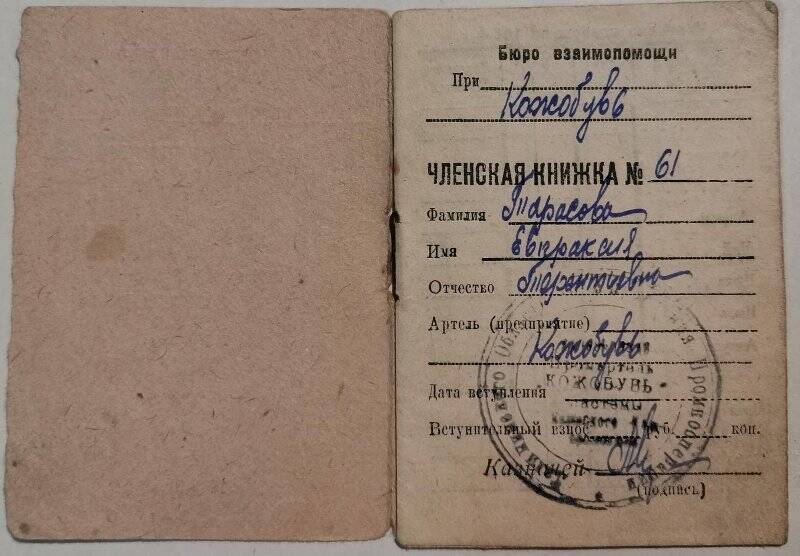 Бюро взаимопомощи
При
Кожобувь
ЧЛЕНСКАЯ КНИЖКА № 61
Фамилия Тарасова
Имя Евпраксия
Отчество Терентьевна
Артель (предприятие)
Кожобувь
Дата вступления
Вступительный взнос руб. коп.
Казначей
(подпись)
КОЖОБУВЬ